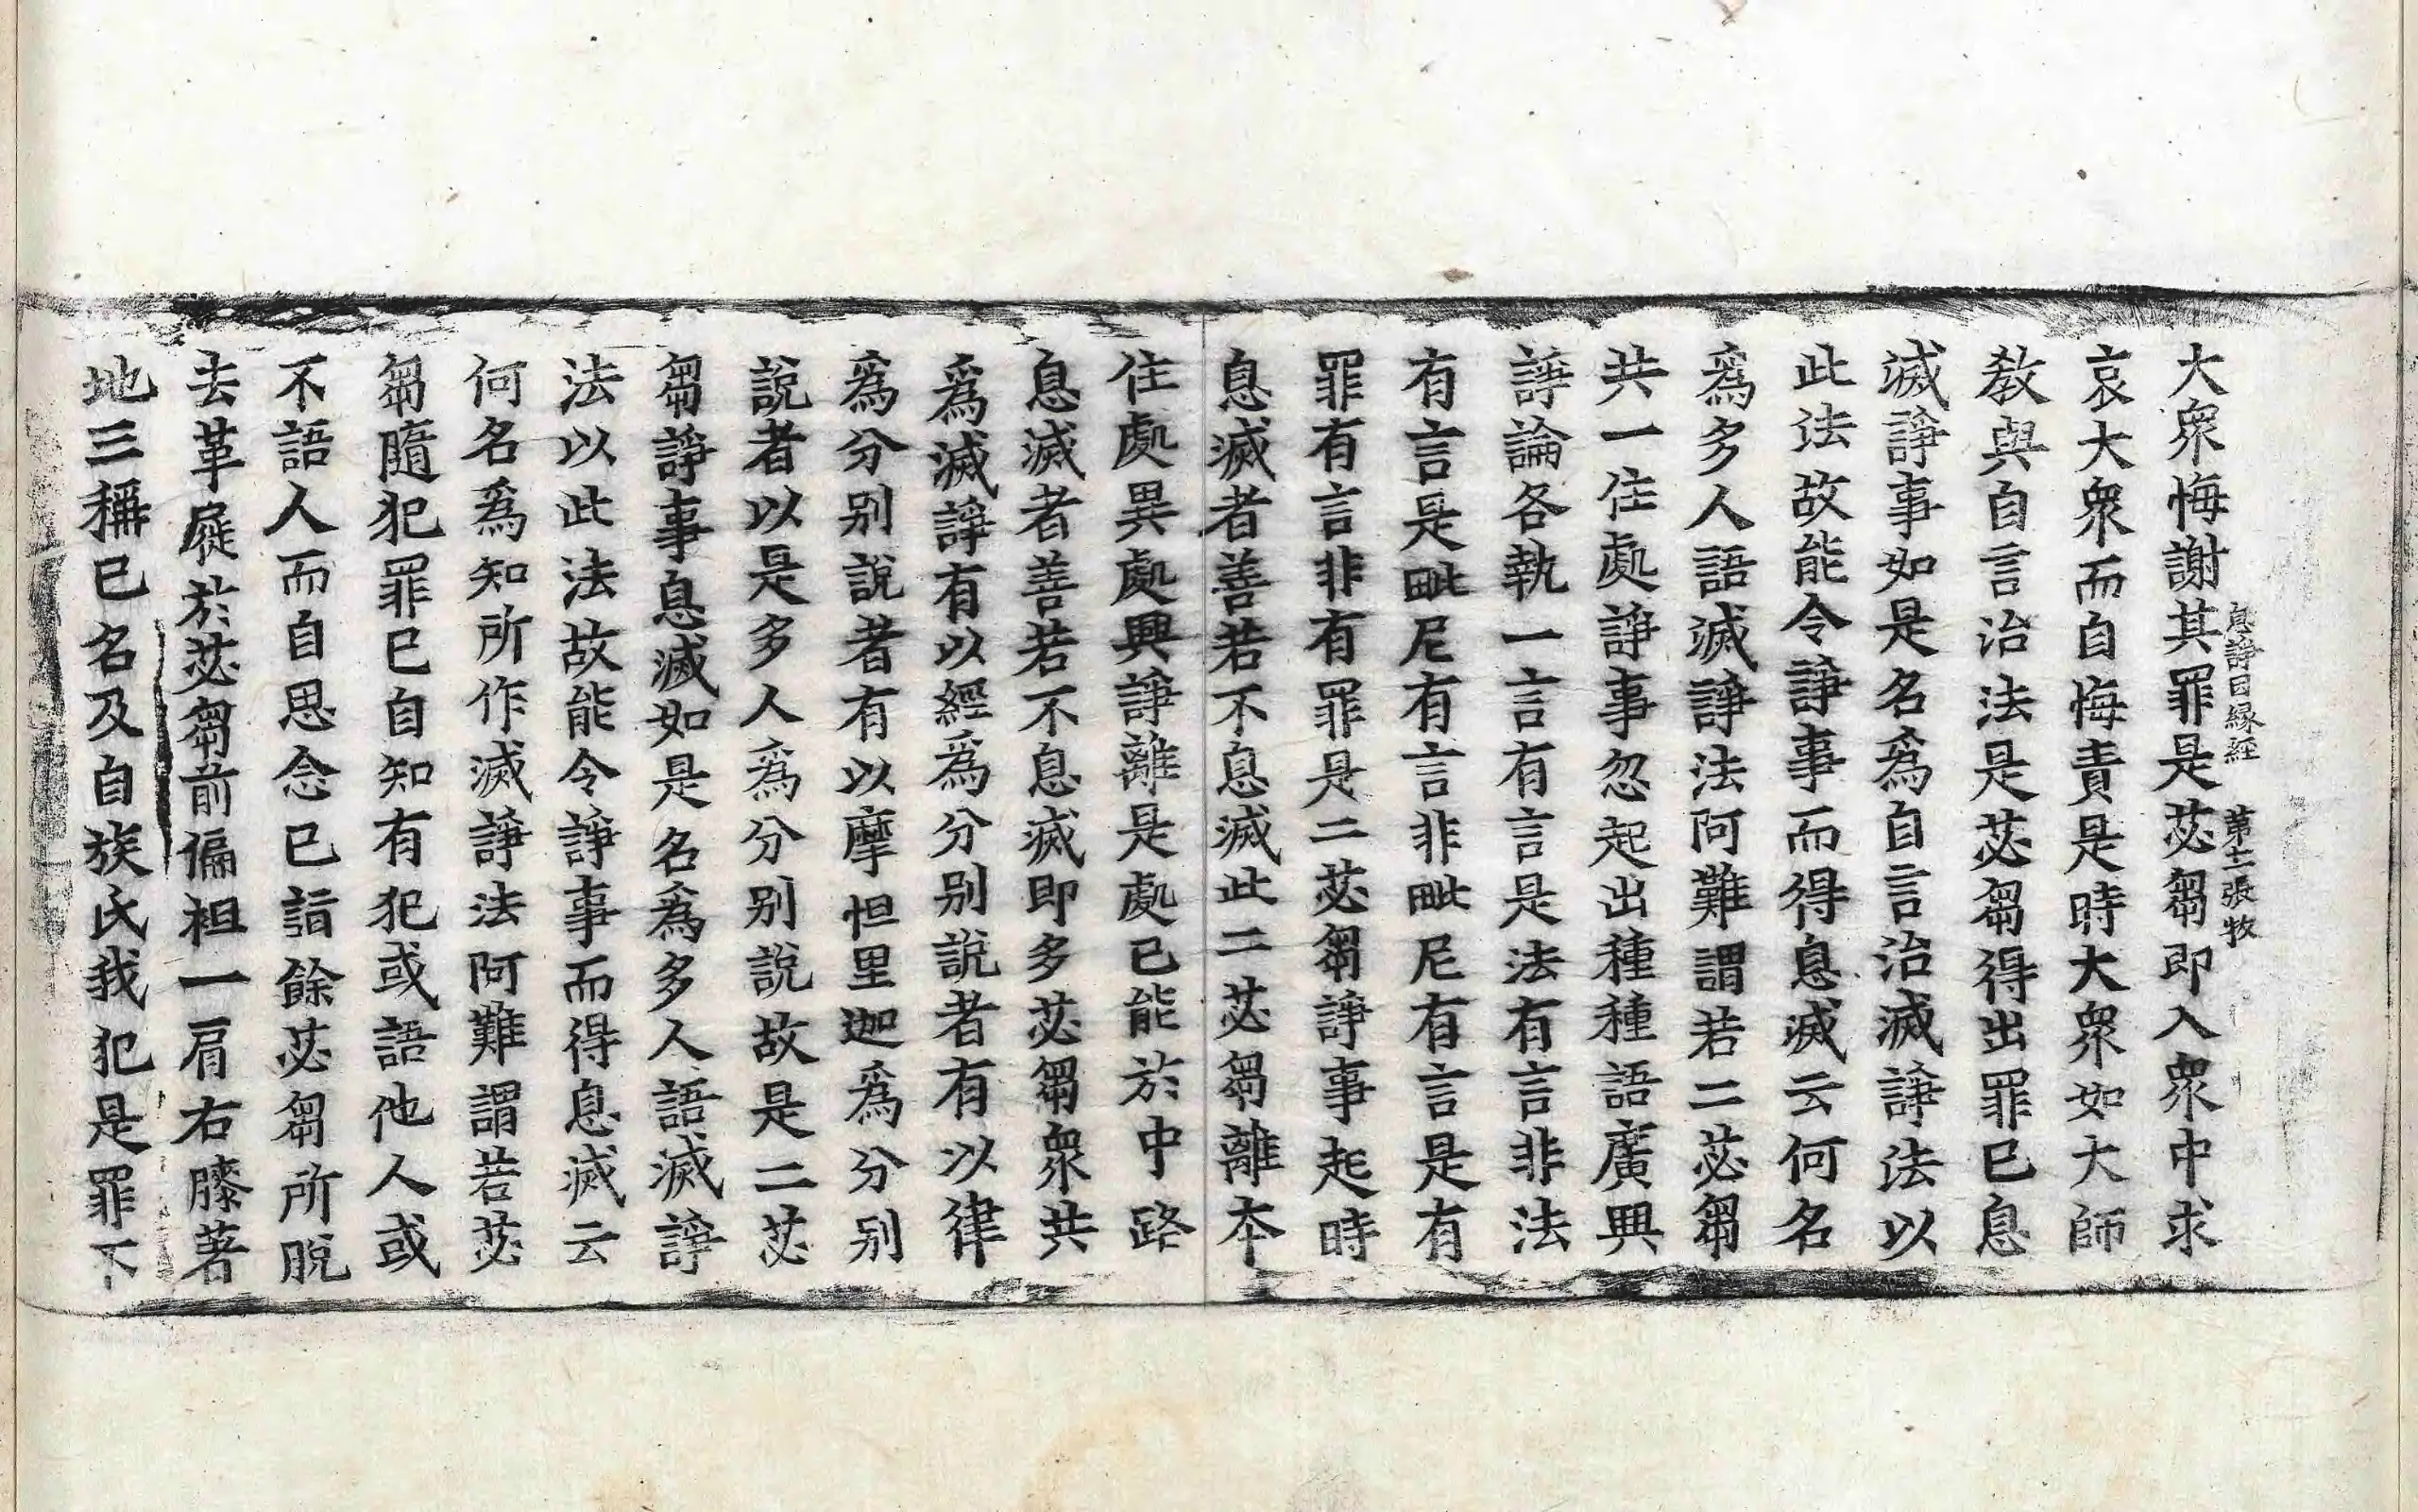 息諍因縁經　第十一張　牧
大衆悔謝其罪是苾芻即入衆中求
哀大衆而自悔責是時大衆如大師
教與自言治法是苾芻得出罪已息
滅諍事如是名爲自言治滅諍法以
此法故能令諍事而得息滅云何名
爲多人語滅諍法阿難謂若二苾芻
共一住處諍事忽起出種種語廣興
諍論各執一言有言是法有言非法
有言是毗尼有言非毗尼有言是有
罪有言非有罪是二苾芻諍事起時
息滅者善若不息滅此二苾芻離本
住處異處興諍離是處已能於中路
息滅者善若不息滅即多苾芻衆共
爲滅諍有以經爲分别說者有以律
爲分别說者有以摩怛里迦爲分别
說者以是多人爲分别說故是二苾
芻諍事息滅如是名爲多人語滅諍
法以此法故能令諍事而得息滅云
何名爲知所作滅諍法阿難謂若苾
芻隨犯罪已自知有犯或語他人或
不語人而自思念已詣餘苾芻所脫
去革屣於苾芻前偏袒一肩右膝著
地三稱已名及自族氏我犯是罪不